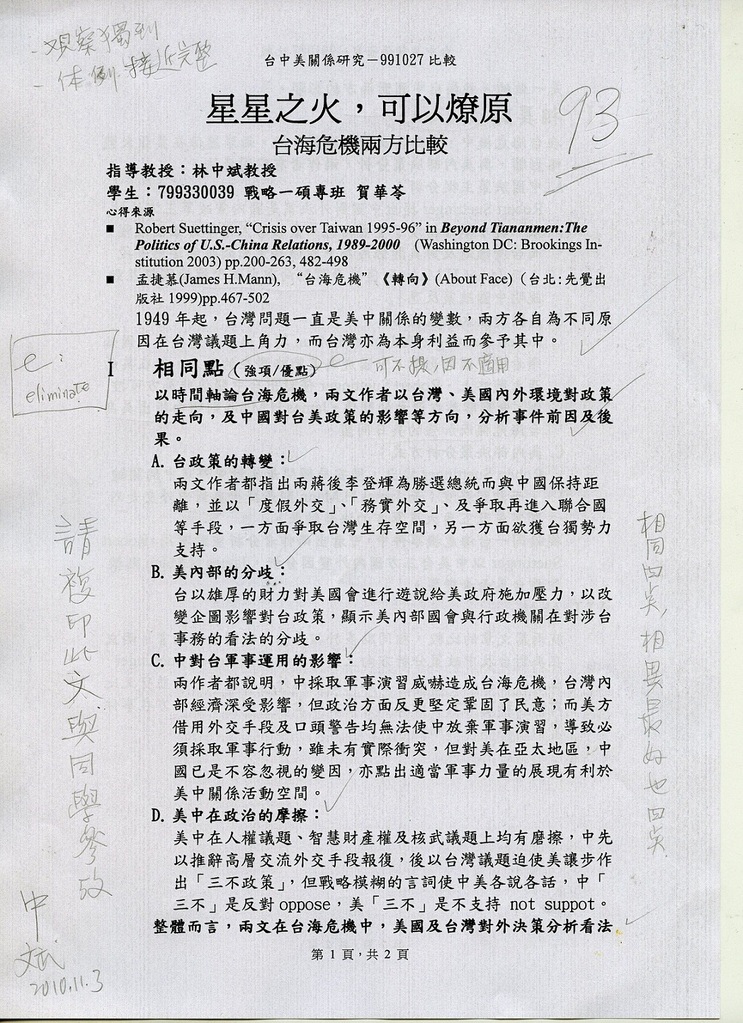 -觀察獨到
-体例接近完整
台中美關係研究－991027比較
93
星星之火，可以燎原
台海危機兩方比較
指導教授：林中斌教授
學生：799330039 戰略一碩專班 賀華苓
心得來源
■ Robert Suettinger, “Crisis over Taiwan 1995-96” in Beyond Tiananmen:The
Politics of U.S.-China Relations, 1989-2000 (Washington DC: Brookings In-
stitution 2003) pp.200-263, 482-498
■ 孟捷慕(James H.Mann), “台海危機”《轉向》(About Face)（台北:先覺出
版社 1999)pp.467-502
1949 年起，台灣問題一直是美中關係的變數，兩方各自為不同原
因在台灣議題上角力，而台灣亦為本身利益而參予其中。
I 相同點（強項/優點）
e 可不提，因不適用
e:
eliminate
以時間軸論台海危機，兩文作者以台灣、美國內外環境對政策
的走向，及中國對台美政策的影響等方向，分析事件前因及後
果。
A. 台政策的轉變：
兩文作者都指出兩蔣後李登輝為勝選總統而與中國保持距
離，並以「度假外交」、「務實外交」、及爭取再進入聯合國
等手段，一方面爭取台灣生存空間，另一方面欲獲台獨勢力
支持。
B. 美內部的分歧：
台以雄厚的財力對美國會進行遊說給美政府施加壓力，以改
變企圖影響對台政策，顯示美內部國會與行政機關在對涉台
事務的看法的分歧。
C. 中對台軍事運用的影響：
兩作者都說明，中採取軍事演習威嚇造成台海危機，台灣內
部經濟深受影響，但政治方面反更堅定鞏固了民意；而美方
借用外交手段及口頭警告均無法使中放棄軍事演習，導致必
須採取軍事行動，雖未有實際衝突，但對美在亞太地區，中
國已是不容忽視的變因，亦點出適當軍事力量的展現有利於
美中關係活動空間。
D. 美中在政治的摩擦：
美中在人權議題、智慧財產權及核武議題上均有磨擦，中先
以推辭高層交流外交手段報復，後以台灣議題迫使美讓步作
出「三不政策」，但戰略模糊的言詞使中美各說各話，中「
三不」是反對oppose，美「三不」是不支持 not suppot。
整體而言，兩文在台海危機中，美國及台灣對外決策分析看法
第 1 頁，共 2 頁
請複印此文與同學參改
中斌
2010.11.3
相同四点，相異最好也四点